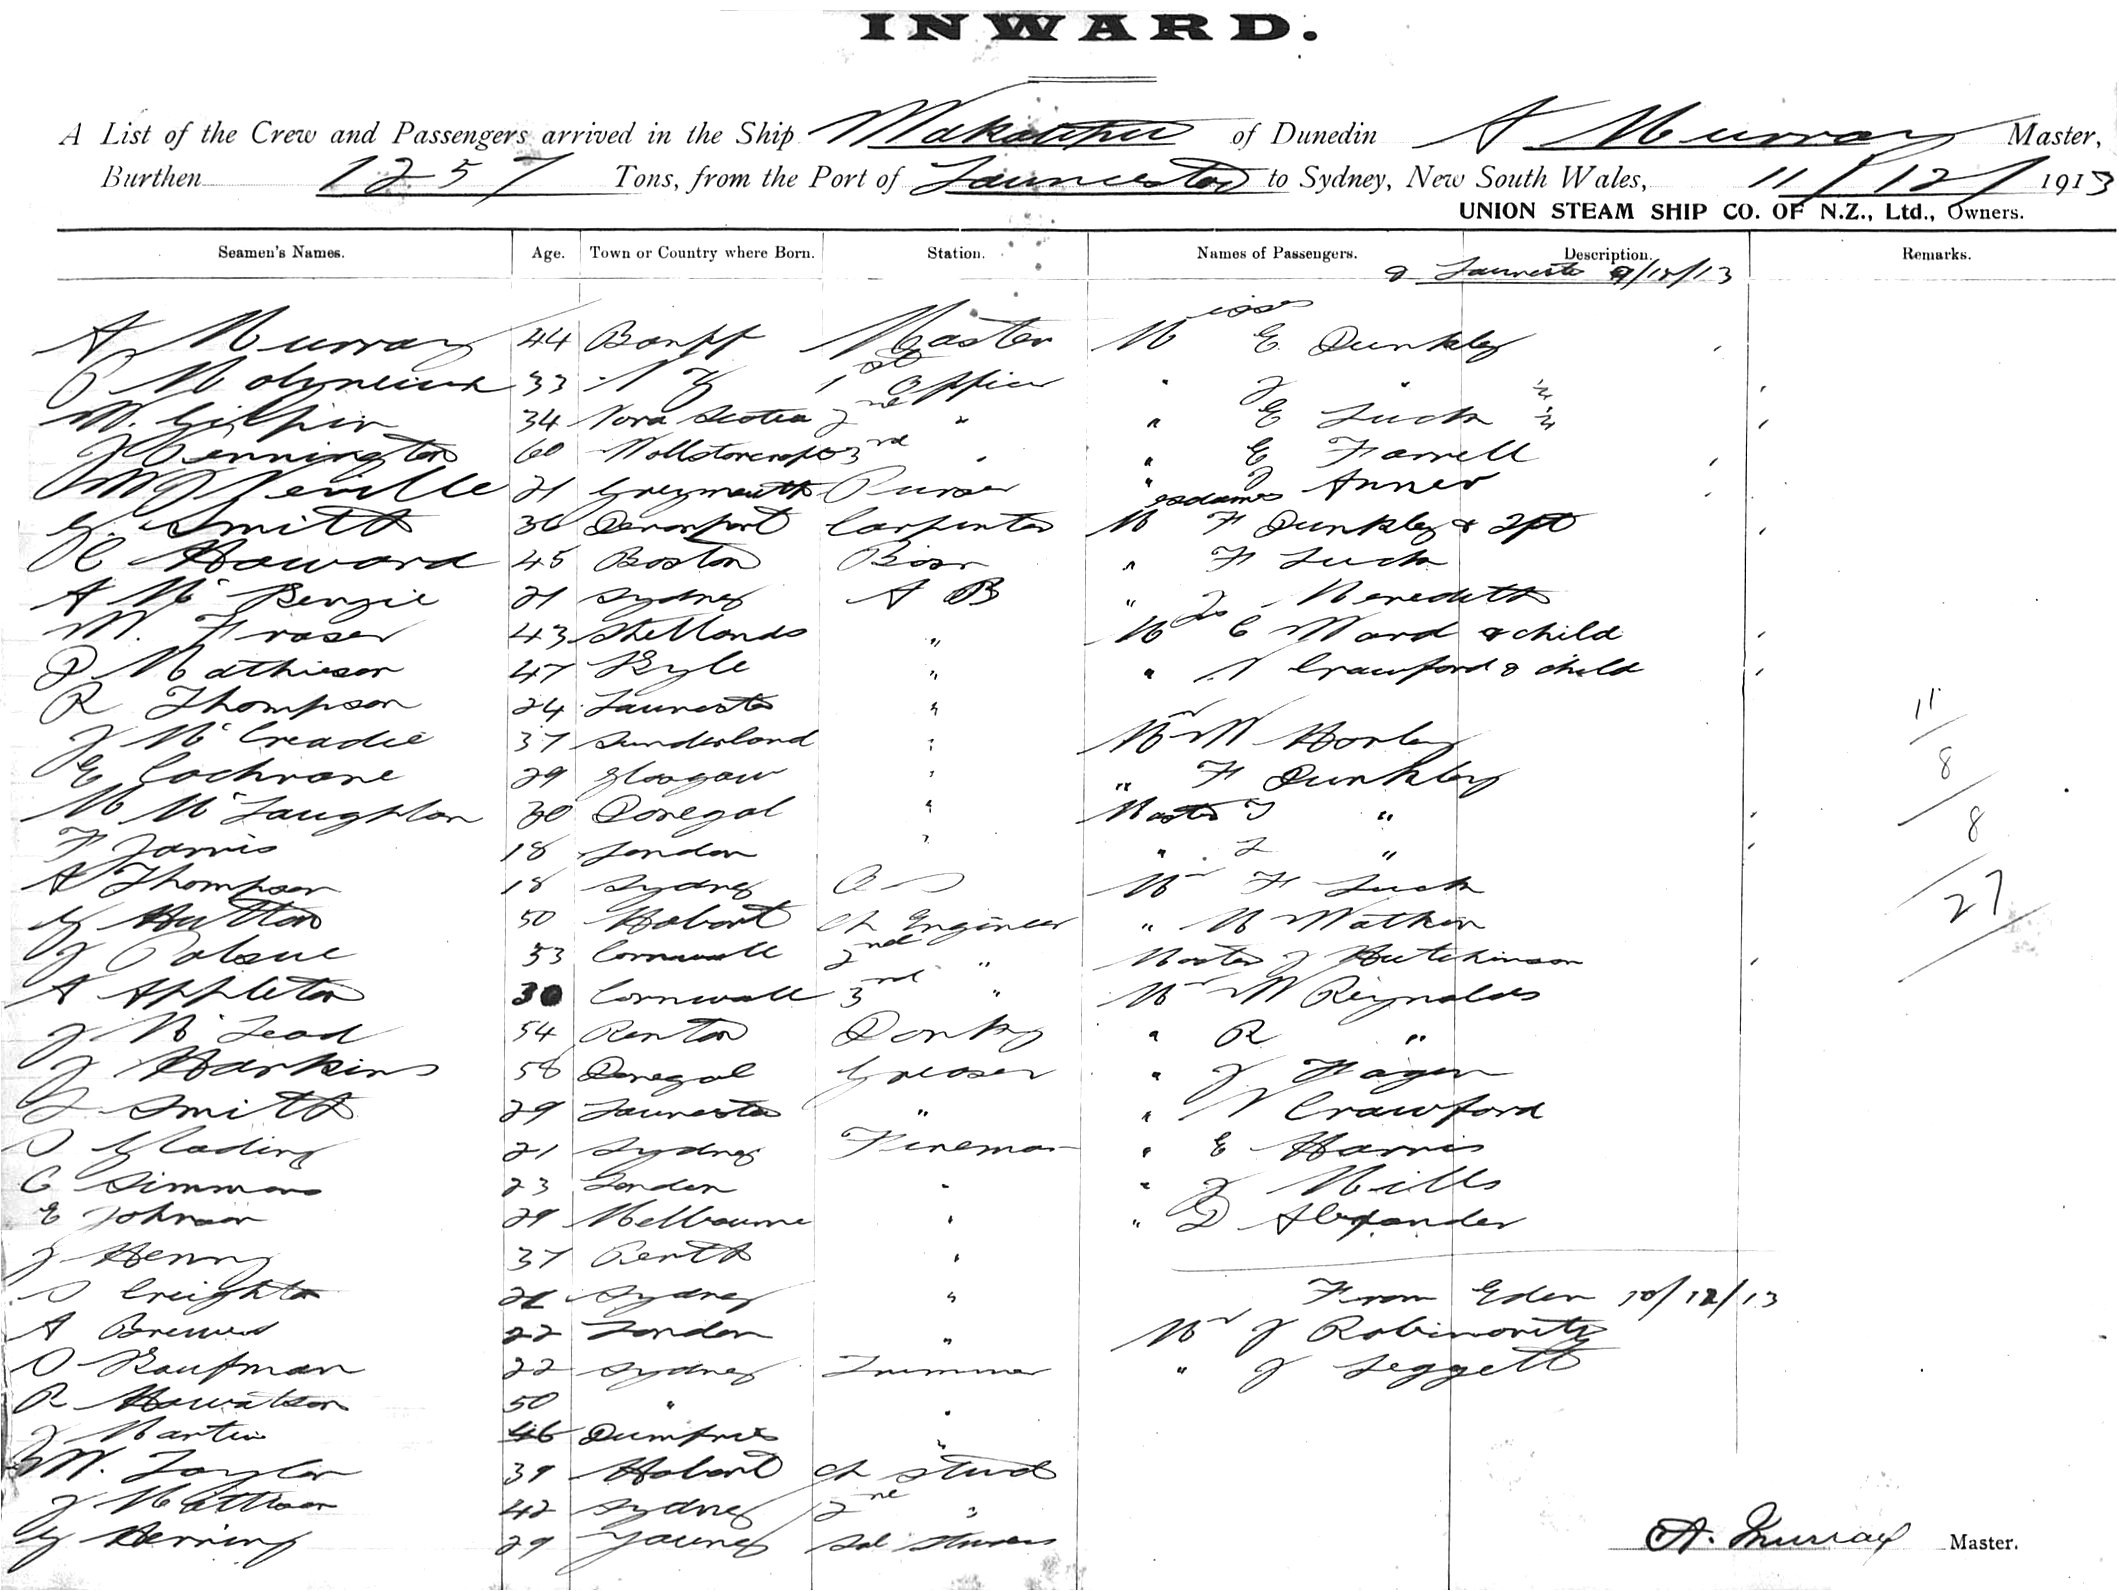 INWARD.
A List of the Crew and Passengers arrived in the Ship of Dunedin A Murray Master,
Burthen 1257 Tons, from the Port of Launceston to Sydney, New South Wales, 11/12/1913
UNION STEAM SHIP CO. OF N.Z., Ltd., Owners.
Seamen's Names. Age. Town or Country where Born. Station. Names of Passengers. Description. Remarks.
9/12/13
A Murray 44 Banff Master Misses E Dunkley
P Molyneux 33 N Z 1st Officer " J "
W. Gilpin 34 Nova Scotia 2nd " " E Luck
J Pennington 60 3rd " " E Farrell
Neville 21 Greymouth Purser " J
G. Smith 36 Devonport Carpenter Mesdames F Dunkley & 2
C Howard 45 Boston Bosn " F Luck
A McKenzie 21 Sydney A B " J Meredith
W. Fraser 43 Shetlands " Mrs C Ward & child
D Mathieson 47 Kyle " " N Crawford & child
R Thompson 24 Launcesto "
J McCreadie 37 Sunderland " Mr W Horley
11
E Cochrane 29 Glasgow " " F Dunkley
8
M McLaughlan 30 Donegal " Master T "
8
F Jarvis 18 London " " L "
A Thompson 18 Sydney O S Mr F Luck
27
G Hutton 50 Hobart Ch Engineer " M Mathew
J Pascue 53 Cornwall 2nd " Master J Hutchinson
A Appleton 30 Cornwall 3rd " Mr W Reynolds
J McLeod 54 Renton Donky " R "
J Harkins 58 Donegal Greaser " J Fagen
L Smith 29 Launcesto " " N Crawford
Glading 21 Sydney Fireman " E Harris
C Simmons 23 London " " J Mills
E Johnson 29 Melbourne " " D Alexander
J Henry 37 Perth "
Creighton 21 Sydney " From Eden 10/12/13
A Brewer 22 London " Mr J Rabinovitz
Kaufman 22 Sydney Trimmer " J Leggett
R Howatson 50 " "
J Martin 46 Dumfries "
W. Taylor 39 Hobart Ch Stwd
J Mattison 42 Sydney 2nd "
G Herring 29 Young
A. Murray Master.